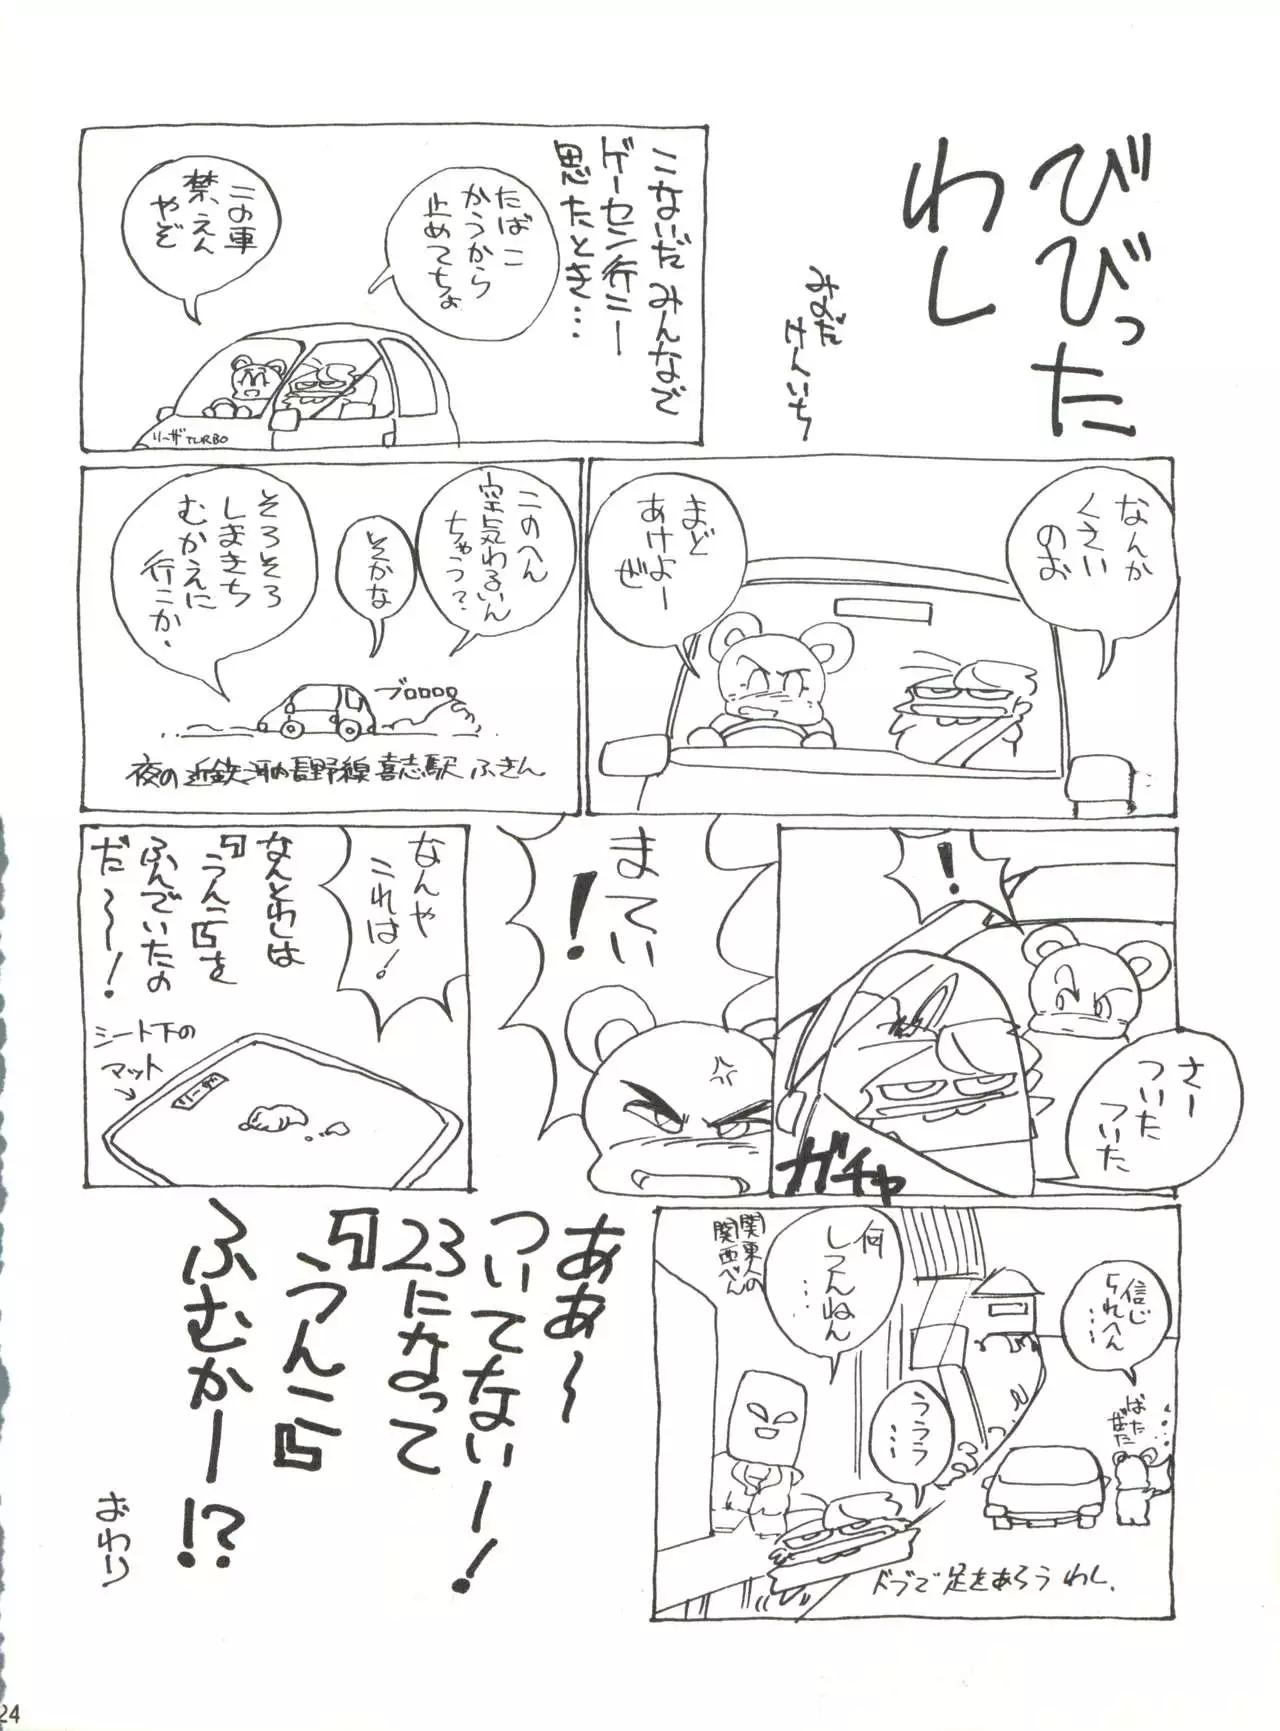 びびった
わし
みのだ
けんいち
こないだみんなで
ゲーセン行こー
思たとき…
たばこ
かうから
止めてちょ
この車
禁えん
やぞ
リーザTURBO
なんか
くさい
のお
まど
あけよー
ぜ
このへん
空気わるいん
ちゃう?
そかな
そろそろ
しまきち
むかえに
行こか・
ブロロロロ
夜の近鉄河内長野線喜志駅ふきん
!
さー
ついた
ついた
ガチャ
まてい
!
なんや
これは!
なんとわしは
『うんこ』を
ふんでいたの
だ〜〜!
シート下の
マット
リーザ
信じ
られへん
……
ばた
ばた
何
してんねん
……
関東人の
関西べん
ううう
……
ドブで足をあろうわし.
ああ〜
ついてないー!
23になって
『うんこ』
ふむかー!?
おわり
24